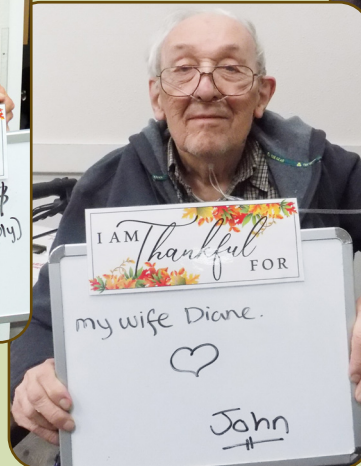 I AM Thankful FOR
my wife Diane.
John